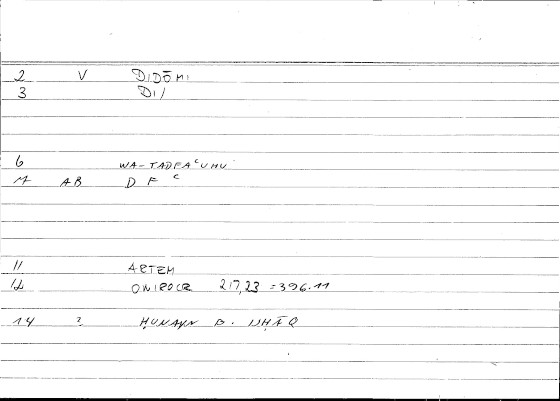 2 V DIDŌMI
3 DI/
6 WA-TADFAʿUHU
M AB D F ʿ
11 ARTEM
12 ONIROCR 217,23 = 396.11
14 ? ḤUNAYN B. ISḤĀQ